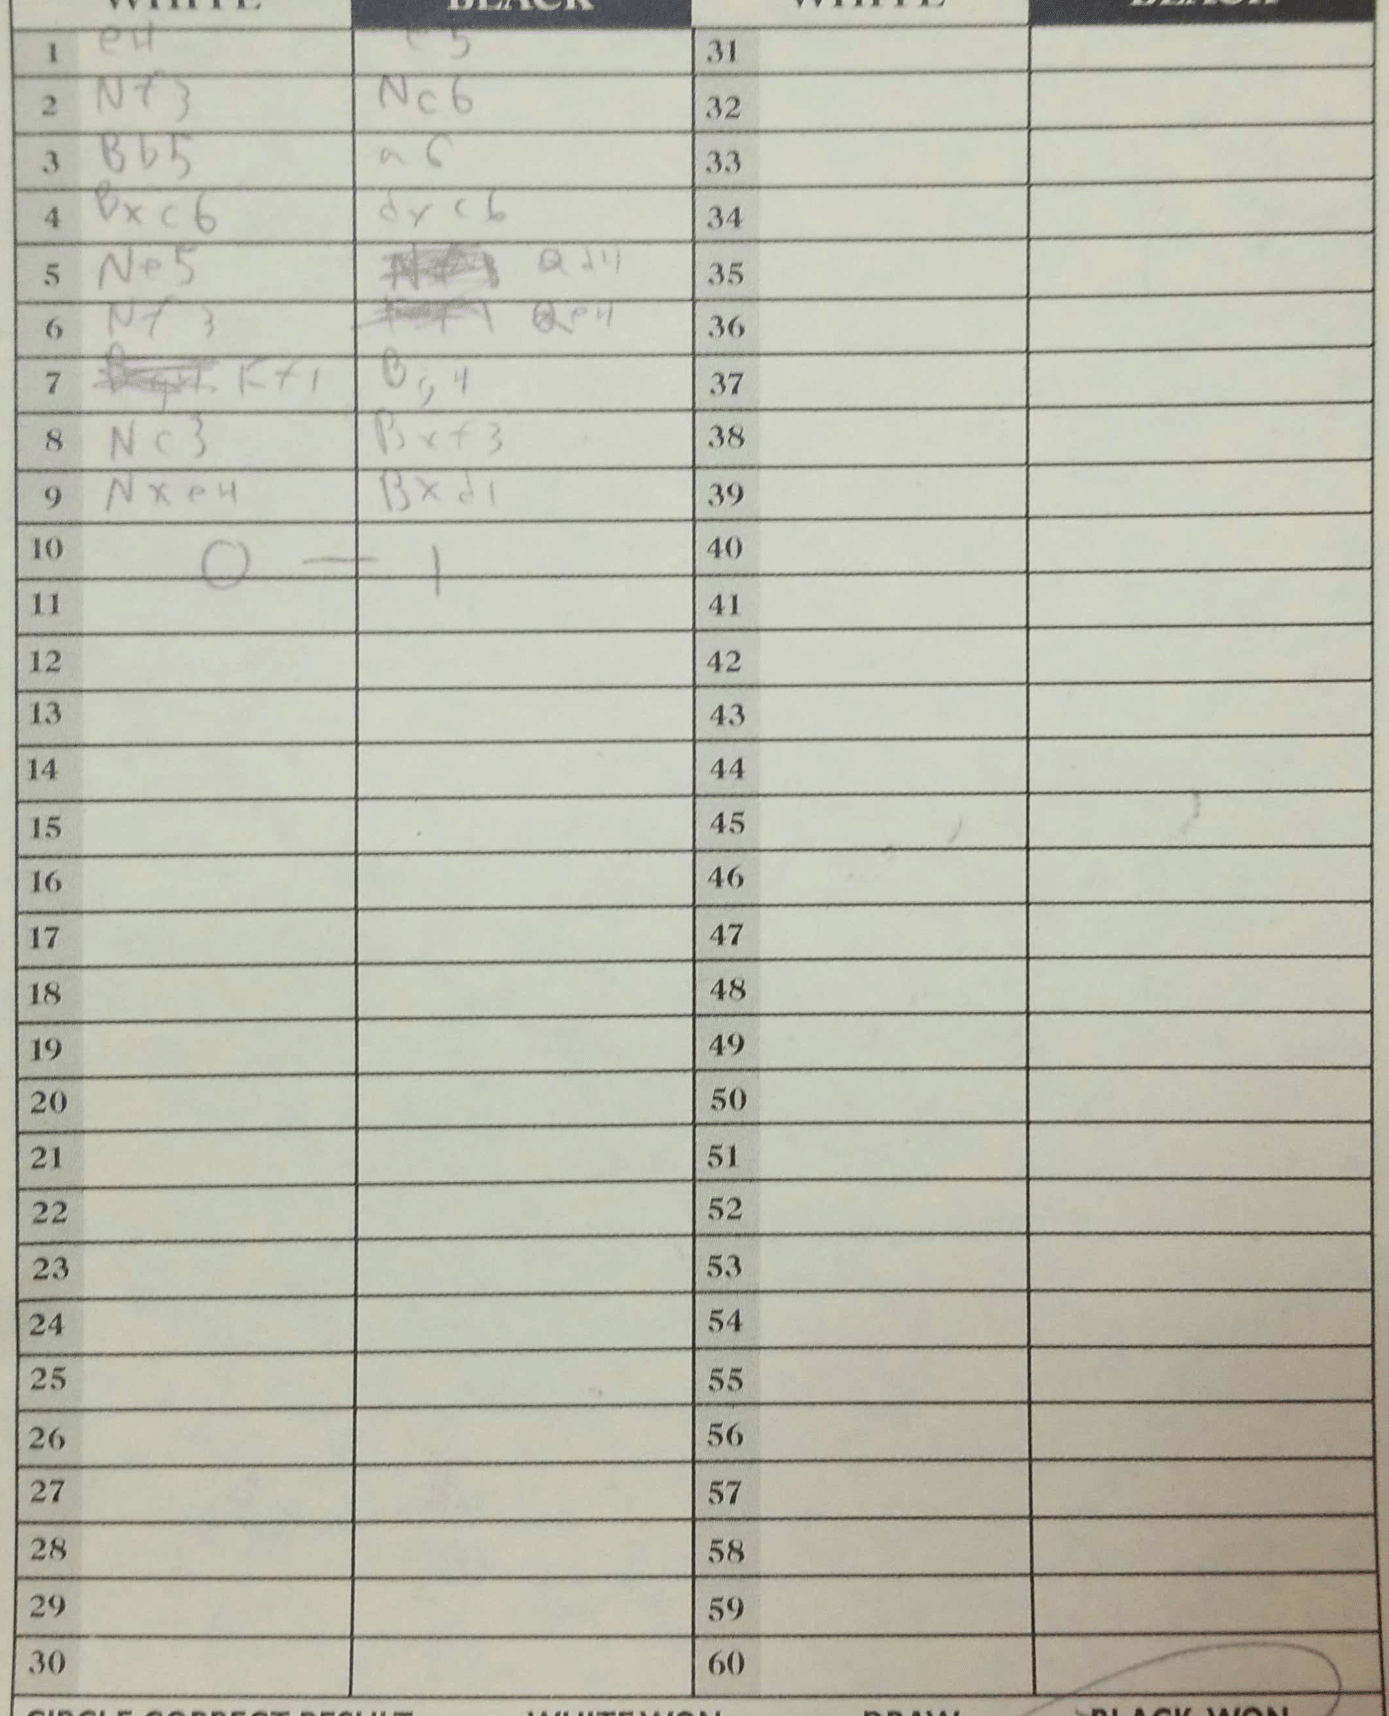 WHITE BLACK WHITE BLACK
1 e4 e5 31
2 Nf3 Nc6 32
3 Bb5 a6 33
4 Bxc6 dxc6 34
5 Ne5 Qd4 35
6 Nf3 Qe4 36
7 Kf1 Bg4 37
8 Nc3 Bxf3 38
9 Nxe4 Bxd1 39
10 0 — 1 40
11 41
12 42
13 43
14 44
15 45
16 46
17 47
18 48
19 49
20 50
21 51
22 52
23 53
24 54
25 55
26 56
27 57
28 58
29 59
30 60
CIRCLE CORRECT RESULT WHITE WON DRAW BLACK WON